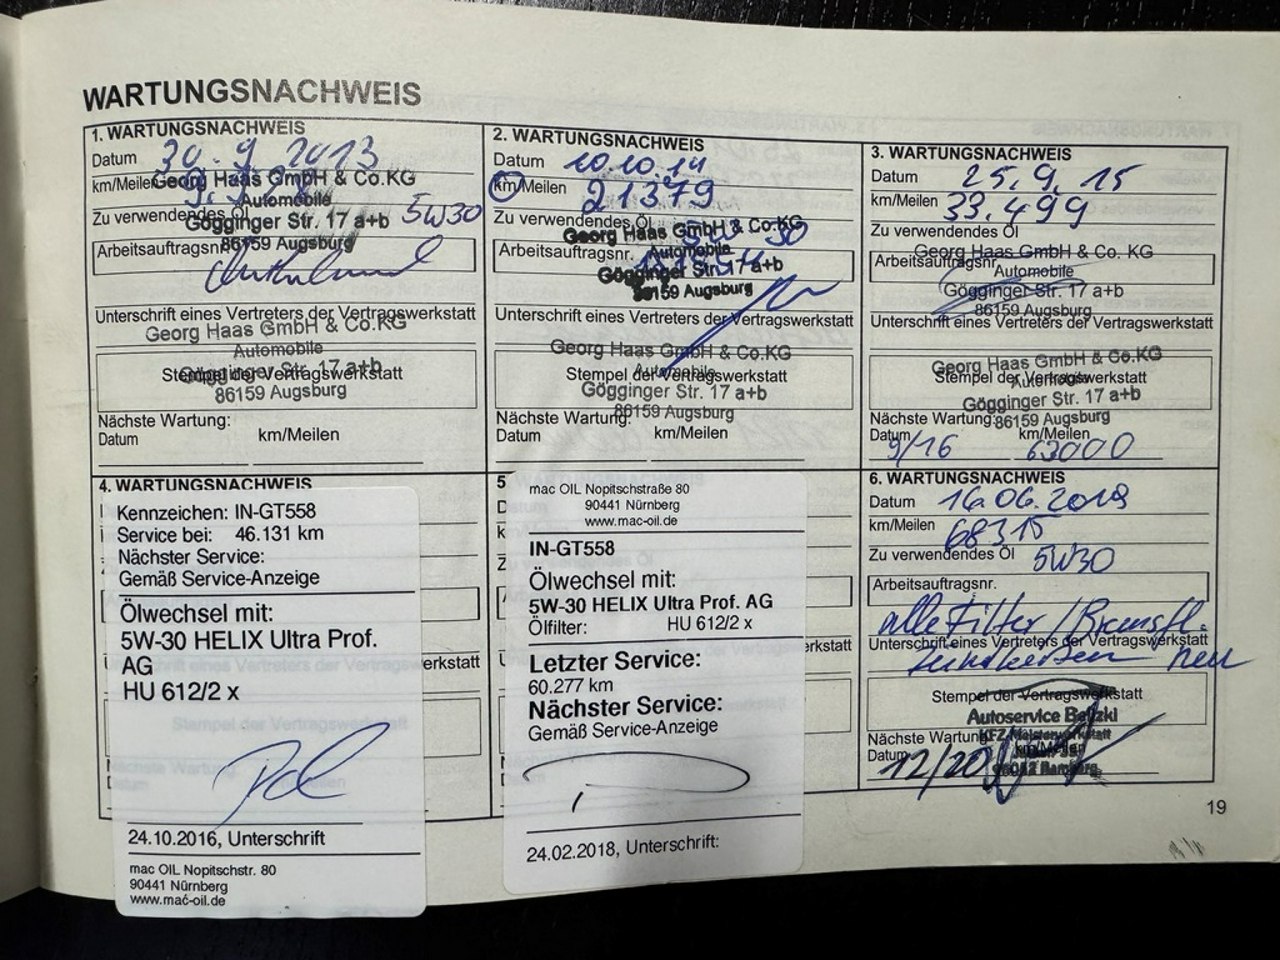 WARTUNGSNACHWEIS
1. WARTUNGSNACHWEIS
Datum 30.9 2013
km/Meilen
Georg Haas GmbH & Co.KG
Automobile
Zu verwendendes Öl 5W30
Gögginger Str. 17 a+b
86159 Augsburg
Arbeitsauftragsnr.
Unterschrift eines Vertreters der Vertragswerkstatt
Georg Haas GmbH & Co.KG
Automobile
Stempel der Vertragswerkstatt
Gögginger Str. 17 a+b
86159 Augsburg
Nächste Wartung:
Datum km/Meilen
2. WARTUNGSNACHWEIS
Datum 10.10.14
km/Meilen 21379
Zu verwendendes Öl 30
Georg Haas GmbH & Co.KG
Automobile
Arbeitsauftragsnr.
Gögginger Str. 17 a+b
86159 Augsburg
Unterschrift eines Vertreters der Vertragswerkstatt
Georg Haas GmbH & Co.KG
Automobile
Stempel der Vertragswerkstatt
Gögginger Str. 17 a+b
86159 Augsburg
Nächste Wartung:
Datum km/Meilen
3. WARTUNGSNACHWEIS
Datum 25.9.15
km/Meilen 33.499
Zu verwendendes Öl
Georg Haas GmbH & Co. KG
Arbeitsauftragsnr.
Automobile
Gögginger Str. 17 a+b
86159 Augsburg
Unterschrift eines Vertreters der Vertragswerkstatt
Georg Haas GmbH & Co.KG
Stempel der Vertragswerkstatt
Automobile
Gögginger Str. 17 a+b
86159 Augsburg
Nächste Wartung:
Datum 9/16 km/Meilen 63000
4. WARTUNGSNACHWEIS
Kennzeichen: IN-GT558
Service bei: 46.131 km
Nächster Service:
Gemäß Service-Anzeige
Ölwechsel mit:
5W-30 HELIX Ultra Prof.
AG
HU 612/2 x
24.10.2016, Unterschrift
mac OIL Nopitschstr. 80
90441 Nürnberg
www.mac-oil.de
5
mac OIL Nopitschstraße 80
90441 Nürnberg
www.mac-oil.de
IN-GT558
Ölwechsel mit:
5W-30 HELIX Ultra Prof. AG
Ölfilter: HU 612/2 x
Letzter Service:
60.277 km
Nächster Service:
Gemäß Service-Anzeige
24.02.2018, Unterschrift:
6. WARTUNGSNACHWEIS
Datum 16.06.2019
km/Meilen 68315
Zu verwendendes Öl 5W30
Arbeitsauftragsnr.
alle Filter / Bremsfl.
Unterschrift eines Vertreters der Vertragswerkstatt
Zündkerzen neu
Stempel der Vertragswerkstatt
Autoservice Belizki
KFZ Meisterwerkstatt
Nächste Wartung
km/Meilen
Datum 12/20
Bamberg
19